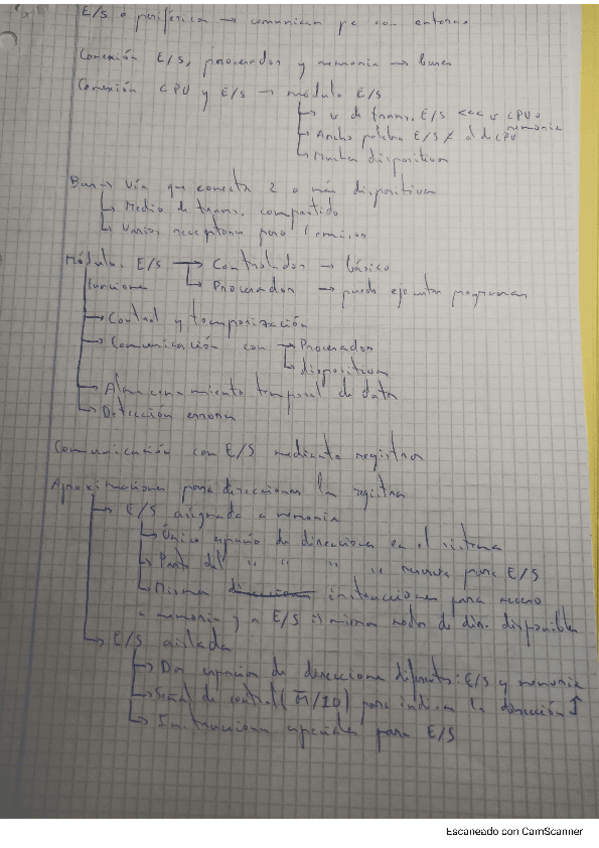 E/S o periféricos → comunican pc con entorno
Conexión E/S, procesador y memoria → buses
Conexión CPU y E/S → módulo E/S
↳ v de trans. E/S <<< v CPU o memoria
↳ Ancho palabra E/S ≠ al de CPU
↳ Muchos dispositivos
Bus → Vía que conecta 2 o más dispositivos
↳ Medio de trans. compartido
↳ Varios receptores pero 1 emisor
Módulos E/S → Controlador → básico
funciones ↳ Procesador → puede ejecutar programas
→ Control y temporización
→ Comunicación con → Procesador
↳ dispositivos
→ Almacenamiento temporal de datos
↳ Detección errores
Comunicación con E/S mediante registros
Aproximaciones para direccionar los registros
→ E/S asignada a memoria
↳ Único espacio de direcciones en el sistema
↳ Parte del " " " se reserva para E/S
↳ Mismas instrucciones para acceso
a memoria y a E/S mismos modos de dir. disponibles
↳ E/S aislada
↳ Dos espacios de direcciones diferentes: E/S y memoria
↳ Señal de control (M/IO) para indicar la dirección ↑
↳ Instrucciones especiales para E/S
Escaneado con CamScanner